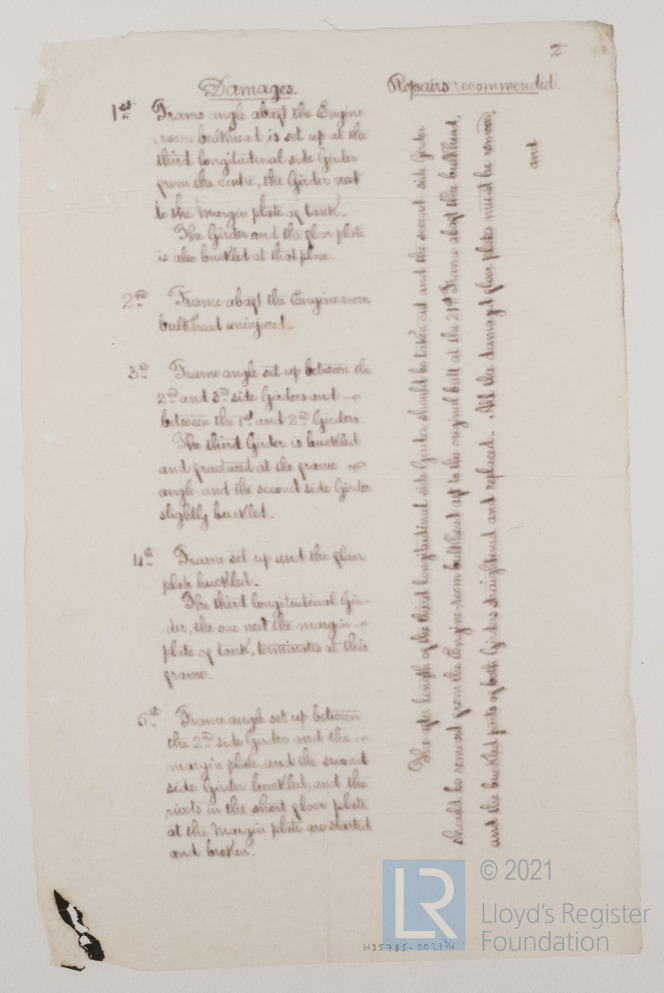 2
Damages.
1st Frame angle abaft the Engine
room bulkhead is set up at the
third longitudinal side Girder
from the centre, the Girder next
to the margin plate of tank.
The Girder and the floor plate
is also buckled at that place.
2nd Frame abaft the Engine room
bulkhead uninjured.
3rd Frame angle set up between the
2nd and 3rd side Girders and
between the 1st and 2nd Girders.
The third Girder is buckled
and fractured at the frame
angle and the second side Girder
slightly buckled.
4th Frame set up and the floor
plate buckled.
The third longitudinal Gir-
der, the one next the margin
plate of tank, terminates at this
frame.
5th Frame angle set up between
the 2nd side Girder and the
margin plate, and the second
side Girder buckled, and the
rivets in the short floor plate
at the Margin plate are started
and broken.
Repairs recommended.
The after length of the third longitudinal side Girder should be taken out and the second side Girder
should be removed from the Engine room bulkhead aft to the original butt at the 21st Frame abaft the bulkhead,
and the buckled parts of both Girders straightened and replaced. All the damaged floor plates must be
and
LR
© 2021
Lloyd's Register
Foundation
W35785-0023